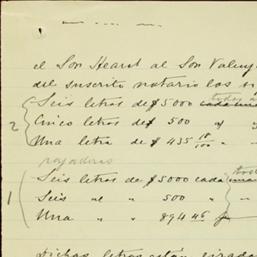 el Sor Hearst al Sor Valenz
del suscrito notario los si
Seis letras de $5000 cada una
2 Cinco letras de $ 500 " "
Una letra de $ 435 18/100 "
rajadas
Seis letras de $5000 cada una
1 Seis " " 500 " "
Una " " 894 46
Dichas letras están giradas